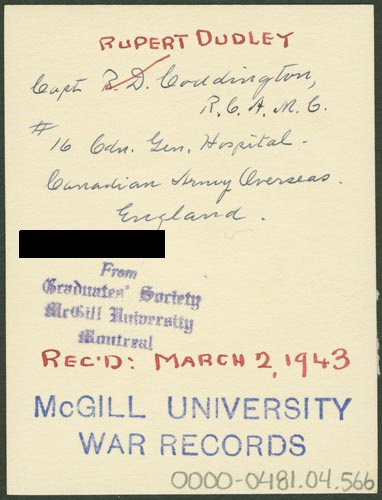 RUPERT DUDLEY
Capt R.D. Coddington,
R.C.A.M.C.
# 16 Cdn. Gen. Hospital.
Canadian Army Overseas.
England.
From
Graduates' Society
McGill University
Montreal
REC'D: MARCH 2, 1943
McGILL UNIVERSITY
WAR RECORDS
0000-0481.04.566